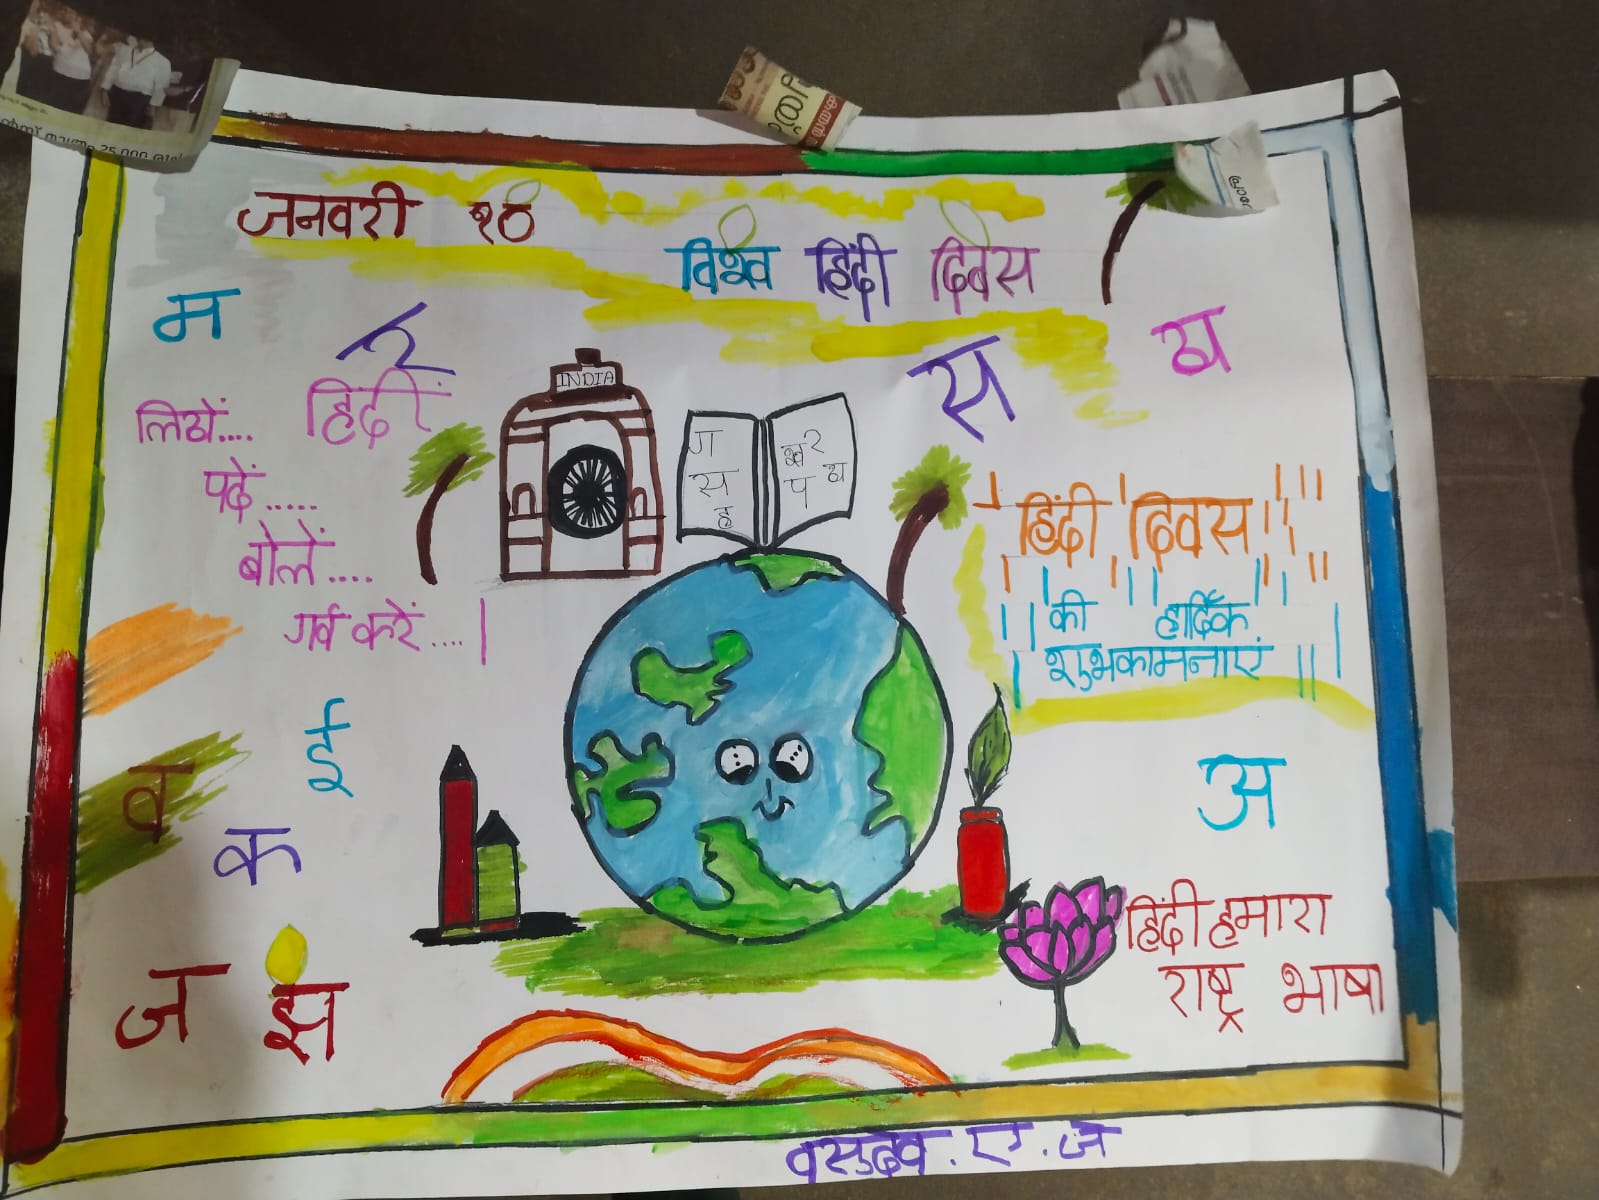 जनवरी १०
विश्व हिंदी दिवस
म
ह
स
य
INDIA
ग
स
ह
र
प य
हिंदी
लिखें....
पढ़ें.....
बोलें....
गर्व करें....|
"हिंदी दिवस"
की हार्दिक
शुभकामनाएं
ई
व
क
अ
ज
झ
हिंदी हमारा
राष्ट्र भाषा
वसुदेव. ए. ज
25,000